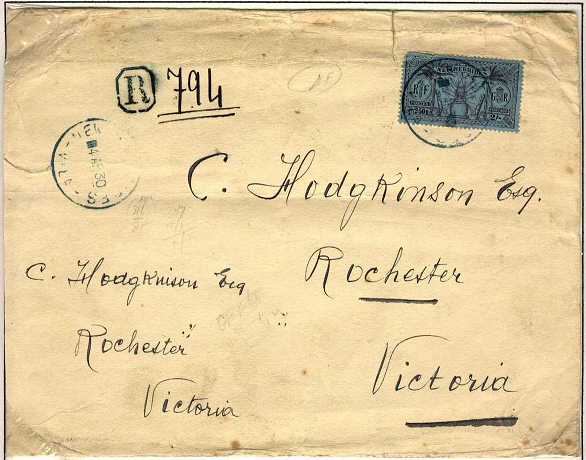 R 794
RF GR
C. Hodgkinson Esq.
Rochester
Victoria
C. Hodgknison Esq
Rochester
Victoria